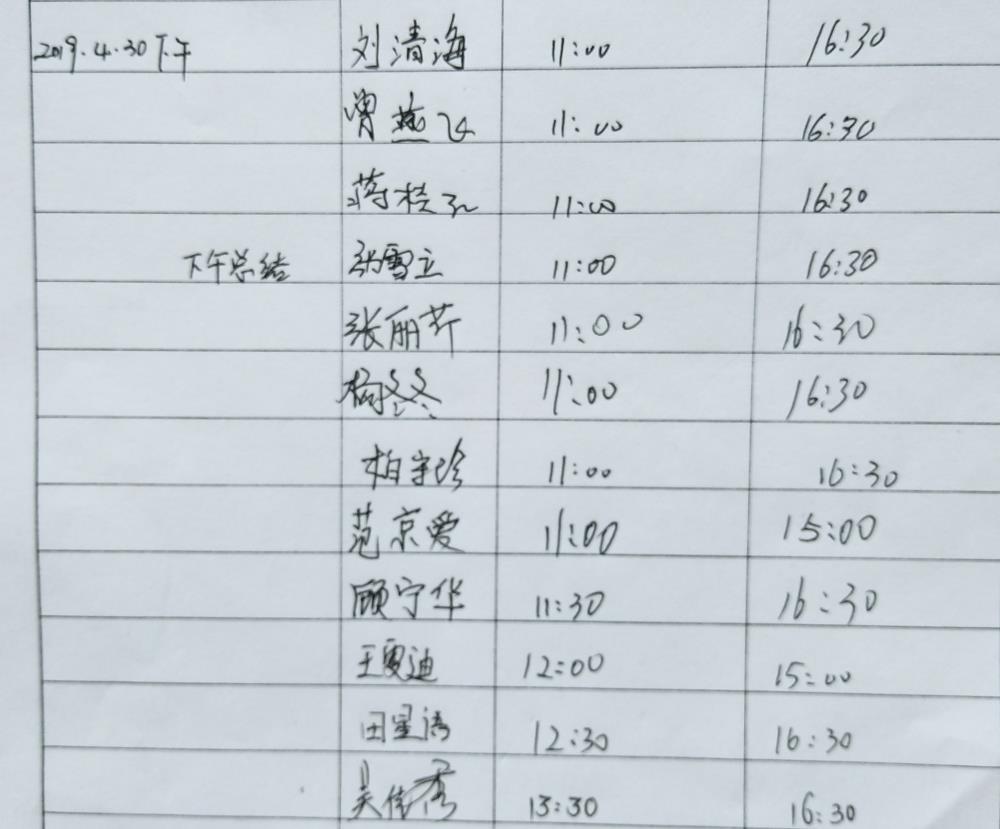 2019.4.30下午 刘清海 11:00 16:30
曾燕飞 11:00 16:30
蒋桂 11:00 16:30
下午总结 张雪立 11:00 16:30
张丽芹 11:00 16:30
杨冬冬 11:00 16:30
柏宇珍 11:00 16:30
范京爱 11:00 15:00
顾宁华 11:30 16:30
王雯迪 12:00 15:00
田星语 12:30 16:30
吴佳秀 13:30 16:30